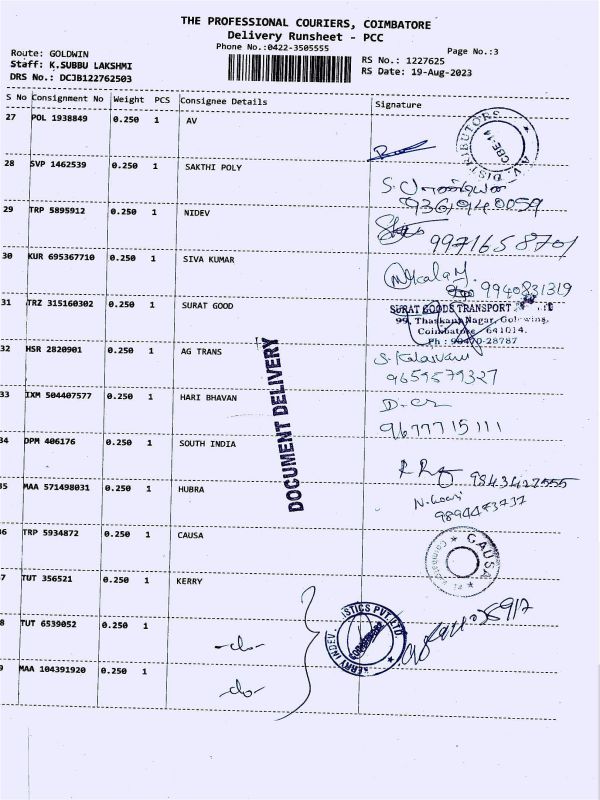 THE PROFESSIONAL COURIERS, COIMBATORE
Delivery Runsheet - PCC
Phone No.:0422-3505555
Page No.:3
Route: GOLDWIN
Staff: K.SUBBU LAKSHMI
DRS No.: DCJB122762503
RS No.: 1227625
RS Date: 19-Aug-2023
S No Consignment No Weight PCS Consignee Details Signature
27 POL 1938849 0.250 1 AV
A.V. DISTRIBUTORS
CBE-14
28 SVP 1462539 0.250 1 SAKTHI POLY
S. பாண்டியன்
9361940059
29 TRP 5895912 0.250 1 NIDEV
9971658701
30 KUR 695367710 0.250 1 SIVA KUMAR
9940831319
31 TRZ 315160302 0.250 1 SURAT GOOD
SURAT GOODS TRANSPORT
99, Thaskana Nagar, Goldwins,
Coimbatore 641014.
Ph : 90470-28787
32 HSR 2820901 0.250 1 AG TRANS
S. Kalaivani
9659579327
33 IXM 504407577 0.250 1 HARI BHAVAN
9677715111
34 DPM 406176 0.250 1 SOUTH INDIA
9843427555
35 MAA 571498031 0.250 1 HUBRA
9894483737
36 TRP 5934872 0.250 1 CAUSA
CAUSA
37 TUT 356521 0.250 1 KERRY
38 TUT 6539052 0.250 1 -do-
KERRY INDEV LOGISTICS PVT. LTD.
39 MAA 104391920 0.250 1 -do-
DOCUMENT DELIVERY